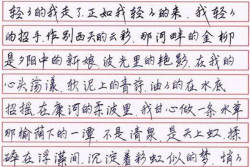 轻轻的我走了,正如我轻轻的来,我轻轻
的招手,作别西天的云彩,那河畔的金柳
是夕阳中的新娘,波光里的艳影,在我的
心头荡漾,软泥上的青荇,油油的在水底
招摇,在康河的柔波里,我甘心做一条水草
那榆荫下的一潭,不是清泉,是天上虹,揉
碎在浮藻间,沉淀着彩虹似的梦,